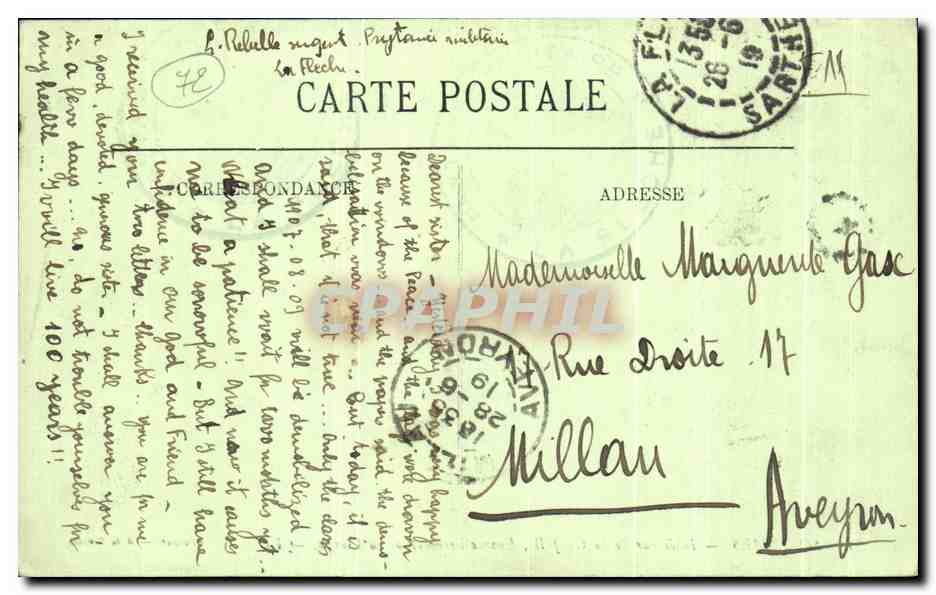 L. Rebelle sergent. Prytanée militaire
La Flèche.
72
CARTE POSTALE
CORRESPONDANCE
ADRESSE
LA FL
13 5
26 -6
19
SARTHE
Dearest sister - Yesterday I was very happy
because of the Peace, and the flags were drawn
on the windows, and the paper said the demo-
bilisation was nigh... But today, it is
said, that it is not true... only the classes
1907. 08. 09 will be demobilized.
And I shall wait for two months yet..
What a patience!! And now it causes
me to be sorrowful - But I still have
confidence in our God and Friend -
I received your two letters - thanks. you are for me
a good, devoted, generous sister - I shall answer you
in a few days... no, do not trouble yourselves for
my health... I will live 100 years!!
Mademoiselle Marguerite Gasc
Rue Droite 17
Millau
Aveyron.
18 35
28 -6
19
AVEYRON
CPAPHIL